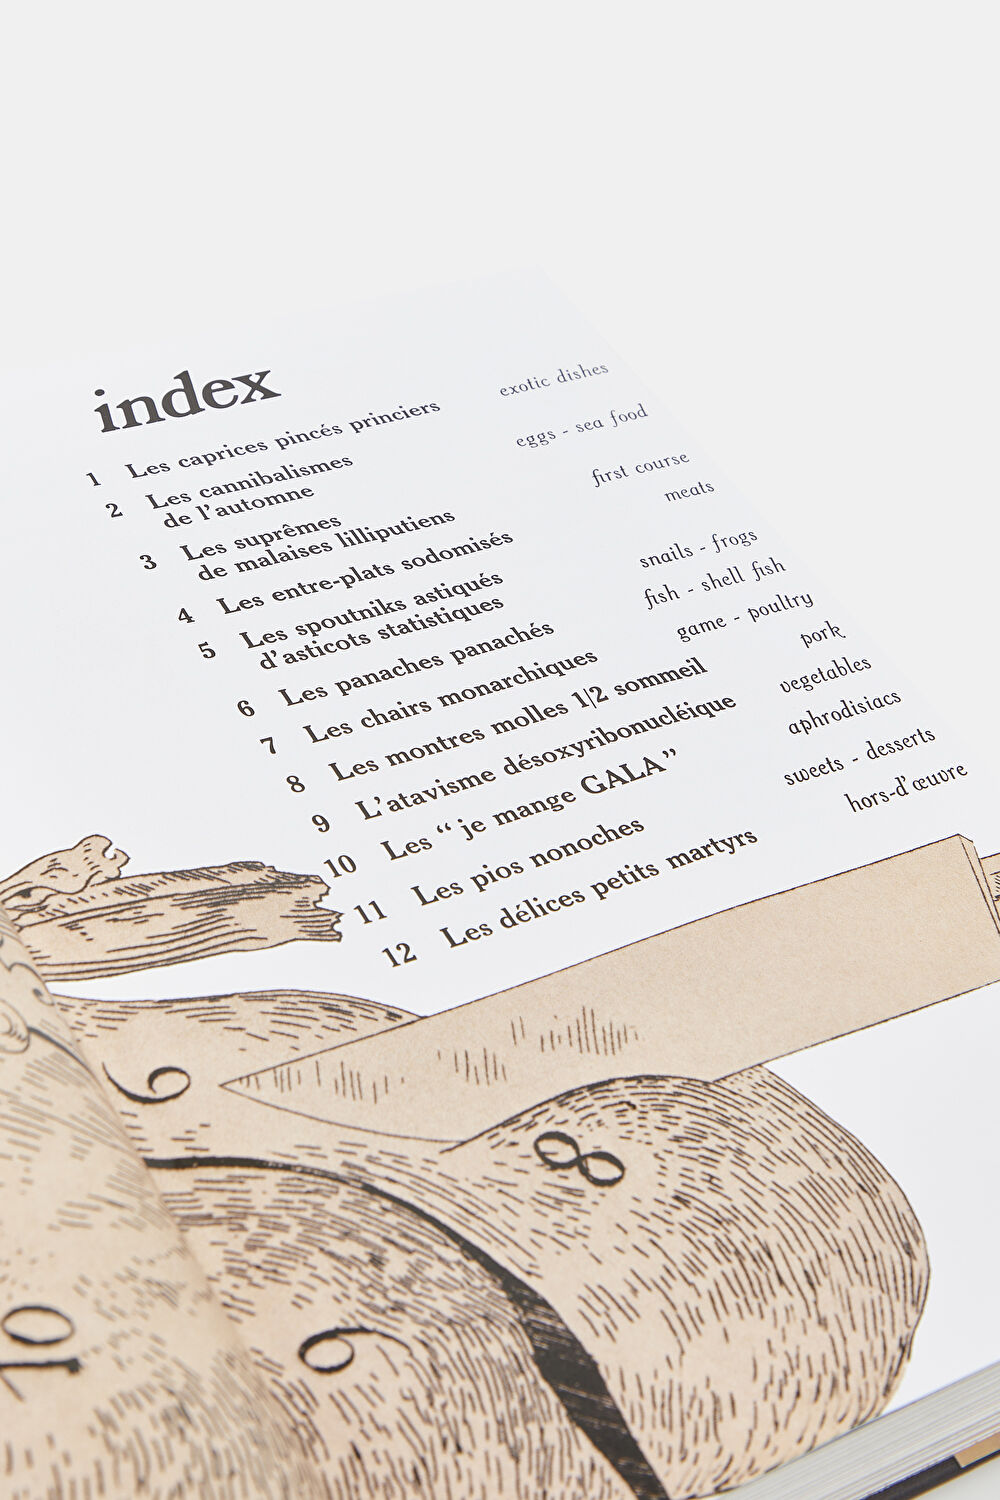 index
1 Les caprices pincés princiers exotic dishes
2 Les cannibalismes
de l'automne eggs - sea food
3 Les suprêmes
de malaises lilliputiens first course
4 Les entre-plats sodomisés meats
5 Les spoutniks astiqués
d'asticots statistiques snails - frogs
6 Les panaches panachés fish - shell fish
7 Les chairs monarchiques game - poultry
8 Les montres molles 1/2 sommeil pork
9 L'atavisme désoxyribonucléique vegetables
10 Les “ je mange GALA” aphrodisiacs
11 Les pios nonoches sweets - desserts
12 Les délices petits martyrs hors-d'œuvre
9
8
10
9